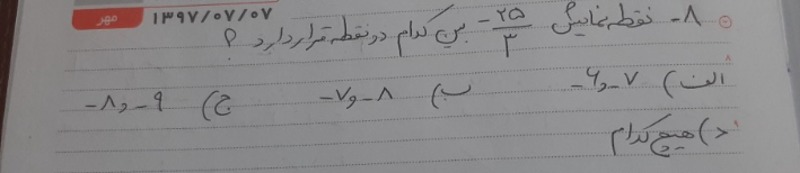 مهر ۱۳۹۷/۰۷/۰۷
۸- نقطه نمایش -۲۵/۳ بین کدام دو نقطه قرار دارد ؟
الف) ۷- و ۶- ب) ۸- و ۷- ج) ۹- و ۸-
د) هیچ کدام